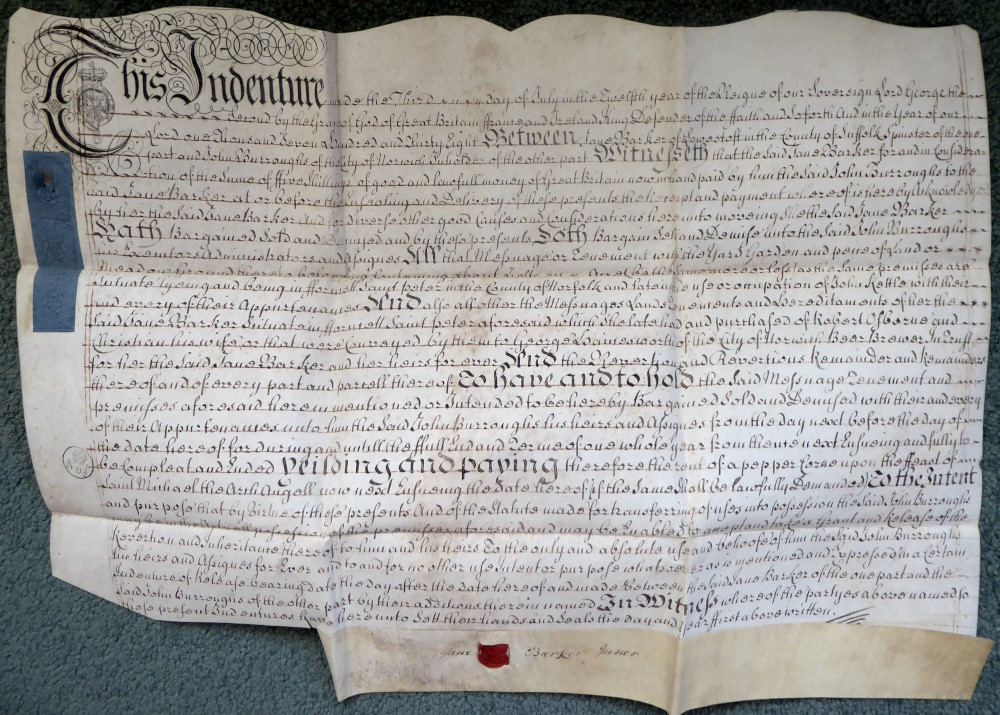 This Indenture made the Third day of July in the Twelfth year of the Reigne of our Sovereign Lord George the
Second by the Grace of God of Great Britain ffrance and Ireland King Defender of the ffaith and so forth And in the Year of our
Lord one Thousand Seven Hundred and Thirty Eight Between Jane Barker of Lowestoft in the County of Suffolk Spinster of the one
part and John Burroughs of the City of Norwich of the other part Witnesseth that the said Jane Barker for and in Considera-
tion of the Summe of ffive Shillings of good and lawfull money of Great Britain now in hand paid by him the said John Burroughs to the
said Jane Barker at or before the Ensealing and Delivery of these presents the receipt and payment whereof is hereby Acknowledged
by her the said Jane Barker And for diverse other good Causes and Considerations hereunto moveing She the said Jane Barker
Hath Bargained Sold and Demised and by these presents Doth Bargain Sell and Demise unto the said John Burroughs
his Executors Administrators and Assignes All that Messuage or Tenement with the Yard Garden and peice of Land or
Meadow Ground thereto containing about more or less as the same premises are
Situate lying and being in fforncett Saint Peter in the County of Norfolk and late in the use or occupation of John Kettle with their
and every of their Appurtenances And also all other the Messuages Lands Tenements and Hereditaments of her the
said Jane Barker Situate in fforncett Saint Peter aforesaid which She late had and purchased of Robert Osborne and
Christian his wife or that were Conveyed by them to George of the City of Norwich Beer Brewer In Trust
for her the said Jane Barker and her heirs for ever And the Revertion and Revertions Remainder and Remainders
thereof and of every part and parcell thereof To have and to hold the said Messuage Tenement and
premisses aforesaid herein mentioned or Intended to be hereby Bargained Sold and Demised with their and every
of their Appurtenances unto him the said John Burroughs his heirs and Assignes from the day next before the day of
the date hereof for during and untill the ffull End and Terme of one whole year from thence next Ensueing and fully to
be Compleat and Ended Yeilding and paying therefore the rent of a pepper Corne upon the ffeast of
Saint Michael the Arch Angell now next Ensueing the date hereof if the same shall be lawfully Demanded To the Intent
and purpose that by Virtue of these presents And of the Statute made for transferring of uses into possession the said John Burroughs
may be in the Actuall possession of the premisses aforesaid and may be Enabled to accept and take a Grant and Release of the
Revertion and Inheritance thereof to him and his heirs To the only and absolute use and behoofe of him the said John Burroughs
his heirs and Assignes for Ever and to and for no other use Intent or purpose whatsoever as is mentioned and Expressed in a Certain
Indenture of Release bearing date the day after the date hereof and made Between the said Jane Barker of the one part and the
said John Burroughs of the other part by their additions therein named In Witness whereof the partyes above named to
these present Indentures have hereunto Sett their hands and Seals the day and Year ffirst above written.
Jane Barker Juner